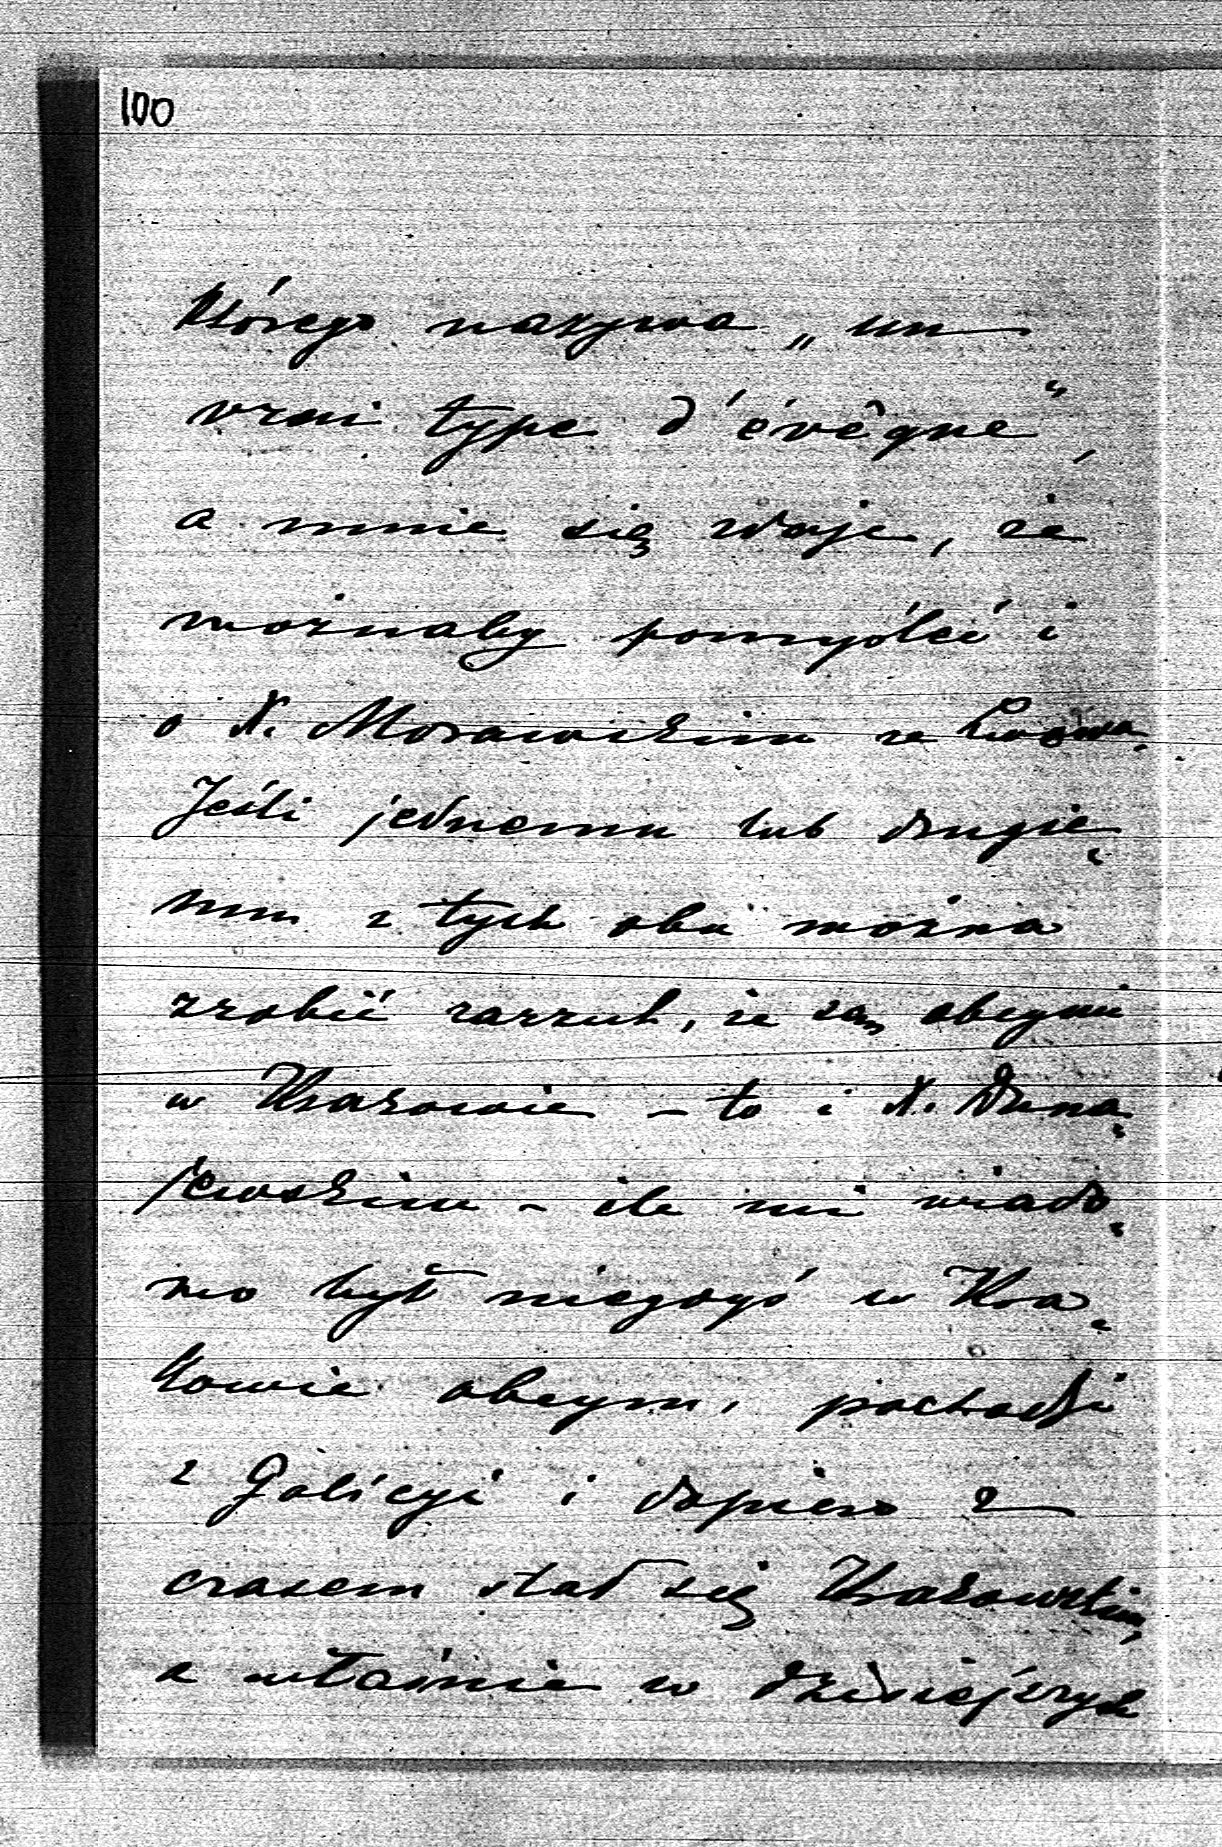 100
którego nazywa „un
vrai type d'évêque“,
a mnie się zdaje, że
możnaby pomyśleć i
o X. Morawskim ze Lwowa.
Jeśli jednemu lub drugie-
mu z tych obu można
zrobić zarzut, że są obcymi
w Krakowie – to i X. Duna-
jewskim – ile mi wiado-
mo był niegdyś w Kra-
kowie obcym, pochodzi
z Galicyi i dopiero z
czasem stał się Krakowskim,
a właśnie w dzisiejszych